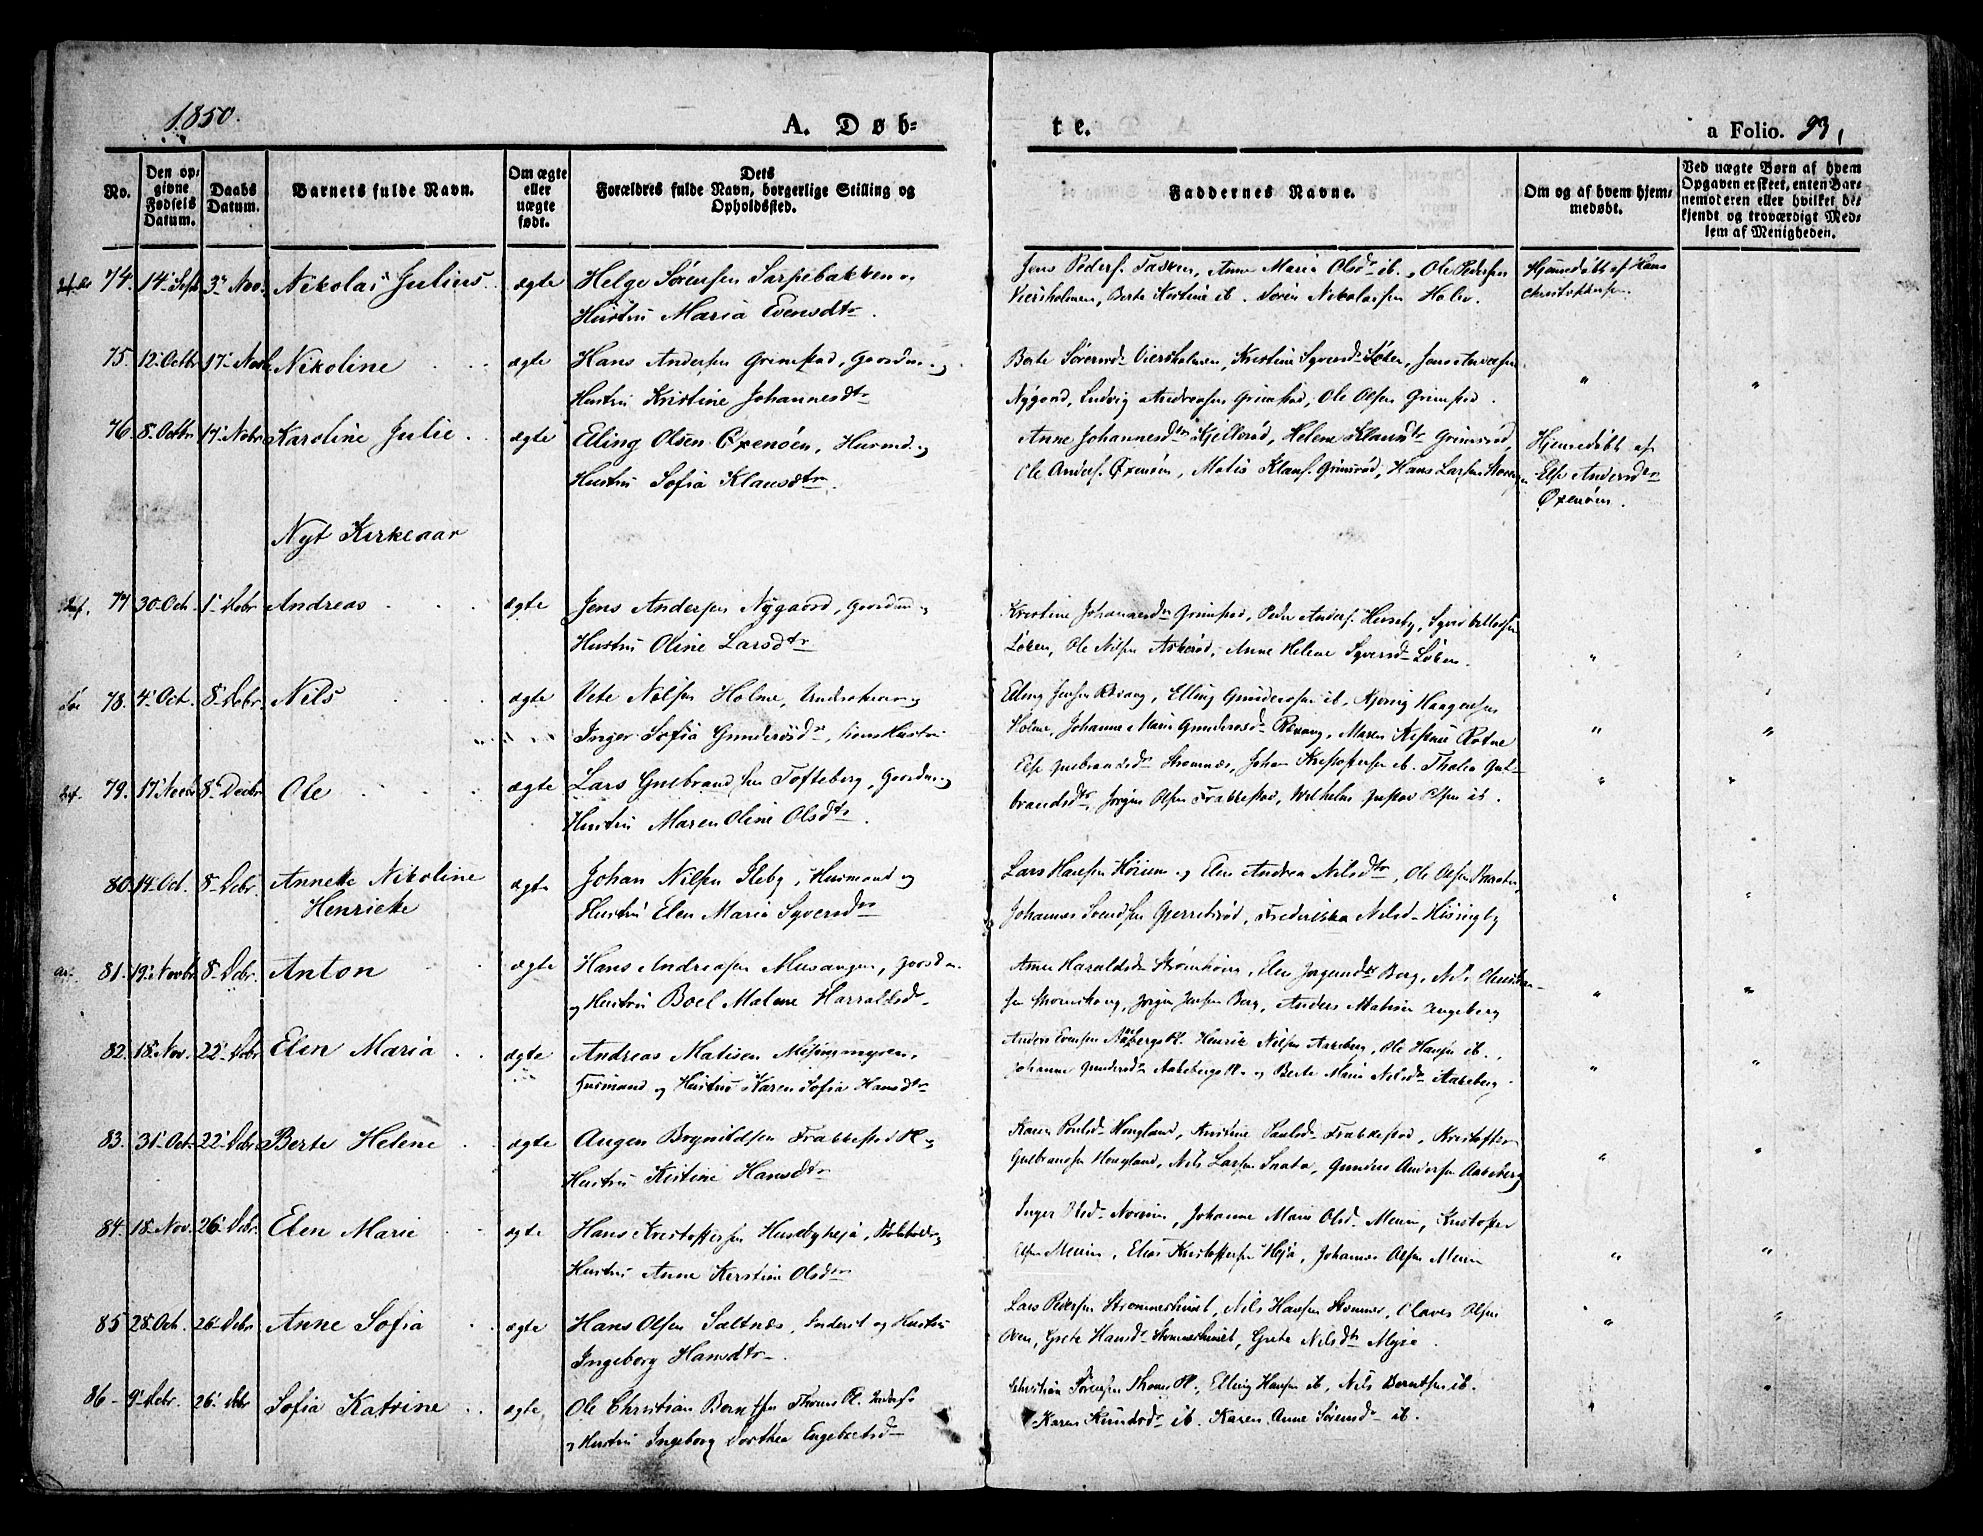 1850.
A. Døb-
te.
a Folio. 93,
No.
Den op-
givne
Fødsels
Datum.
Daabs
Datum.
Barnets fulde Navn.
Om ægte
eller
uægte
født.
Dets
Forældres fulde Navn, borgerlige Stilling og
Opholdssted.
Faddernes Navne.
Om og af hvem hjem-
medøbt.
Ved uægte Børn af hvem
Opgaven er skeet, enten Bar-
nemoderen eller hvilket be-
kjendt og troværdigt Med-
lem af Menigheden.
74. 14 Sept 3 Nov. Nikolai Julius ægte Helge Sørensen Sarpebakken
Hustru Maria Evensdtr.
Jens Peders. Anne Maria Olsdr ib. Ole Pedersen
Viersholmen, Berte Kristine ib. Søren Nikolaisen Holm.
Hjemedøbt af Hans
Christophersen.
75. 12 Octbr 17 Novb Nikoline ægte Hans Andersen Grimstad, Gaardm. og
Hustru Kristine Johannesdtr
Berte Sørensd. Viersholmen, Kristine Syversd. Løken, Jens Andersen
Nygaard, Ludvig Andreasen Grimstad, Ole Olsen Grimstad.
76. 8 Octbr 17 Nobr Karoline Julie ægte Elling Olsen Oxenøen, Husmd. og
Hustru Sofia Klausdtr.
Anne Johannesdtr Kjellerød, Helene Klausdtr Grimsrød,
Ole Anders. Oxenøen, Matis Klaus. Grimsrød, Hans Larsen
Hjemedøbt af
Else Andersdtr
Oxenøen.
Nyt Kirkeaar
77 30 Oct. 1 Debr Andreas ægte Jens Andersen Nygaard, Gaardmd og
Hustru Oline Larsdtr
Kristine Johannesdtr Grimstad, Peder Anders. Huseby,
Løken, Ole Nilsen Askerød, Anne Helene Syversd. Løken.
78. 4 Oct. 8 Debr. Nils ægte Vete Nilsen Holme,
Inger Sofia Gundersdr, hans Hustru
Elling Jensen Revaug, Elling Gundersen ib, Haagensen
Holme, Johanne Marie Gundersd. Revaug, Maren
79. 17 Novbr 8 Decbr Ole ægte Lars Gulbrandsen Tofteberg, Gaardm. og
Hustru Maren Oline Olsdtr.
Else Gulbrandsdr Strømnæs, Johan Kristoffersen ib. Thalia Gul-
brandsdtr, Jørgen Olsen Frakkestad, Wilhelm Gustav Olsen ib.
80. 14 Oct. 8 Debr. Annette Nikoline
Henriette
ægte Johan Nilsen Ileby, Husmand og
Hustru Elen Maria Syversdtr
Lars Hansen og Elen Andrea Nilsdtr, Ole Olsen
Johannes Svendsen Gjerrebrød, Frederikka Nilsd. Hissingby
81. 19 Novbr 8 Debr. Anton ægte Hans Andreasen Musangen, Gaardm.
og Hustru Boel Malene Harraldsd.
Anne Haraldsd. Strømhoug, Elen Jørgensdr Berg, Nils
sen Strømshoug, Jørgen Jensen Berg, Anders Matisen Engeberg
82. 18 Nov. 22 Debr Elen Maria ægte Andreas Matisen Misinmyren,
Husmand og Hustru Karen Sofia Hansdtr
Anders Evensen Aabergs Pl. Henrik Nilsen Aaseberg, Ole Hansen ib.
Johanne Gundersd. Aasebergs Pl. og Berte Marie Nilsdr Aaseberg.
83. 31 Oct. 22 Debr Berte Helene ægte Augen Brynildsen Frakkestad Pl. og
Hustru Kristine Hansdtr
Karen Paulsd. Hougland, Kristine Paulsd. Frakkestad, Kristoffer
Gulbransen Hougland, Nils Larsen Snata, Gunder Andersen Aaseberg
84. 18 Nov. 26 Debr. Elen Marie ægte Hans Kristoffersen Husebyheja,
Hustru Anne Kerstine Olsdtr
Inger Olsd. Johanne Marie Olsd. Menin, Kristoffer
Olsen Menin, Elias Kristoffersen Heja, Johannes Olsen Menin
85 28 Oct. 26 Debr Anne Sofia ægte Hans Olsen Saltnæs, Inderst og Hustru
Ingeborg Hansdtr.
Lars Pedersen Strømmeshuset, Nils Hansen Strømnes, Olaves Olsen
Oven, Grete Hansdr Strømmeshuset, Grete Nilsdtr Myra.
86 9 Debr. 26 Debr Sofia Katrine ægte Ole Christian Berntsen Thomes Pl. Inderst
og Hustru Ingeborg Dorthea Engebretsd.
Christian Sørensen Thomes Pl., Elling Hansen ib, Nils Berntsen ib.
Karen Knudsdr ib. Karen Anne Sørensdr ib.